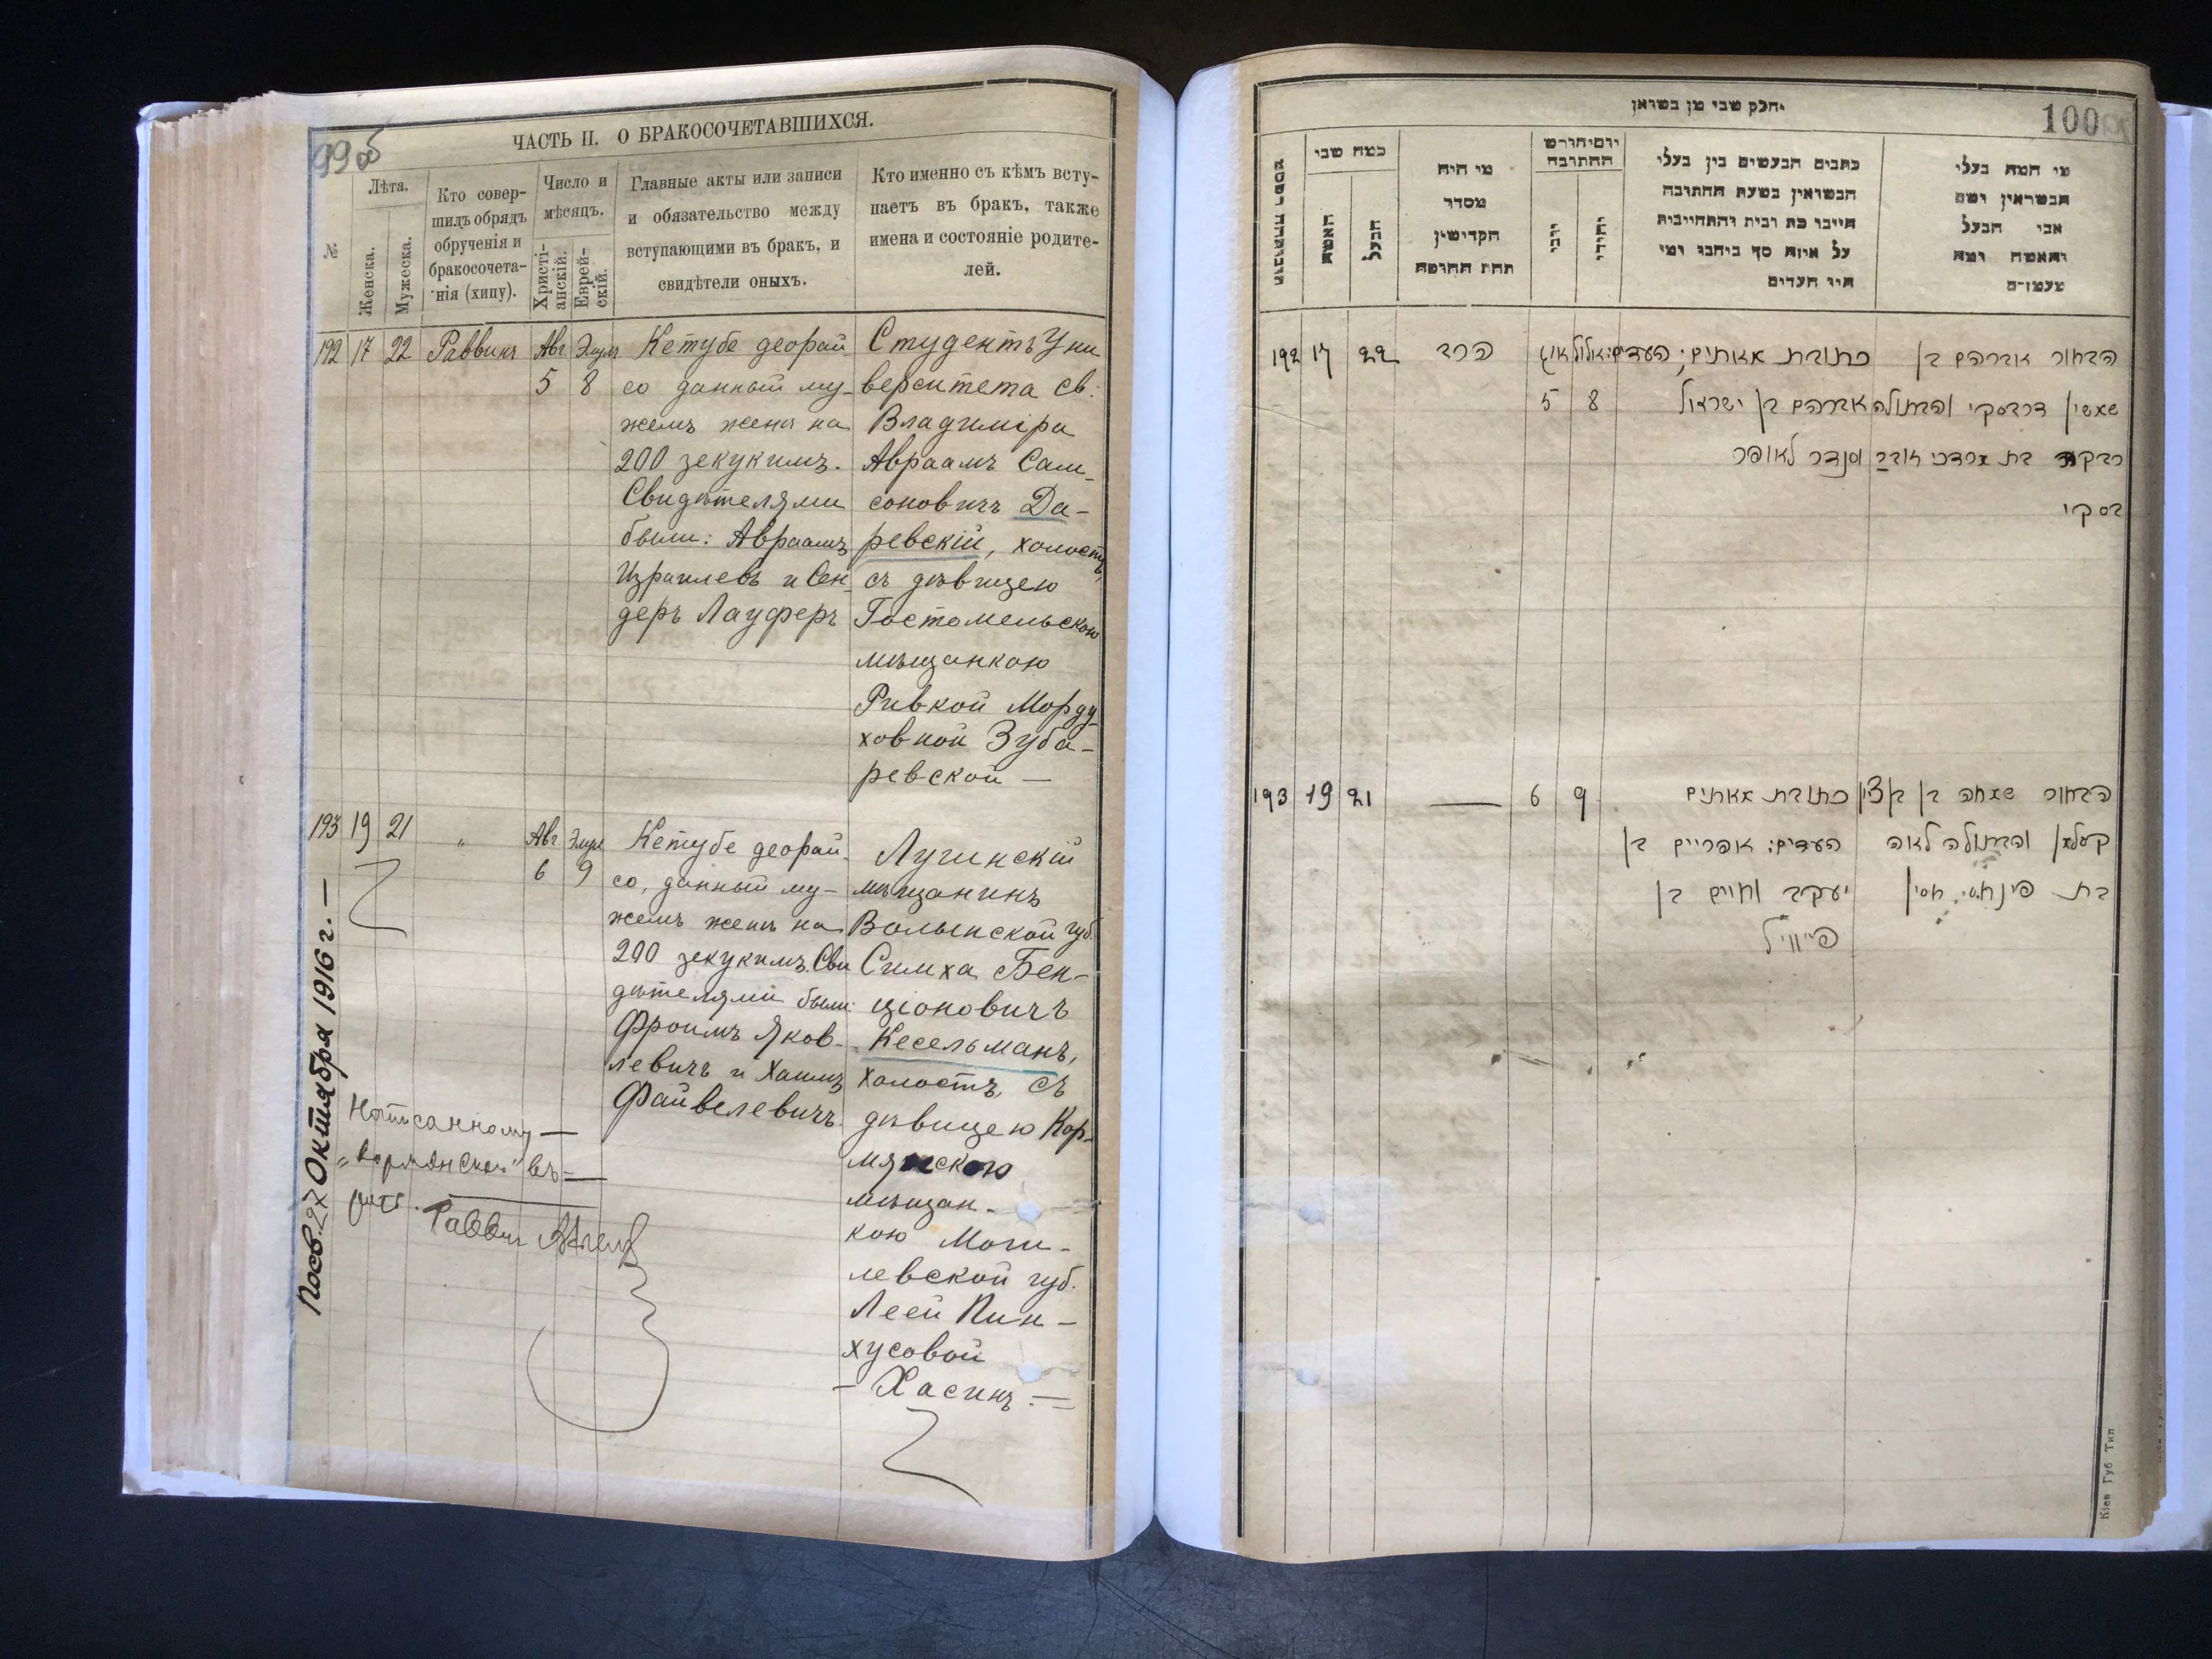 99об
ЧАСТЬ II. О БРАКОСОЧЕТАВШИХСЯ.
№
Лѣта.
Женска.
Мужеска.
Кто совер-
шилъ обрядъ
обрученія и
бракосочета-
нія (хипу).
Число и
мѣсяцъ.
Христі-
анскій.
Еврей-
скій.
Главные акты или записи
и обязательство между
вступающими въ бракъ, и
свидѣтели оныхъ.
Кто именно съ кѣмъ всту-
паетъ въ бракъ, также
имена и состояніе родите-
лей.
192 17 22 Раввинъ Авг Элулъ
5 8
Кетубе деорай
со данный му-
жемъ женѣ на
200 зекукимъ.
Свидѣтелями
были: Авраамъ
Израилевъ и Сен-
деръ Лауферъ
Студентъ Уни
верситета св.
Владиміра
Авраамъ Сам-
соновичъ Да-
ревскій, холостъ,
съ дѣвицею
Гостомельскою
мѣщанкою
Ривкой Морду-
ховной Зуба-
ревской —
193 19 21 " Авг Элул
6 9
Кетубе деорай-
со, данный му-
жемъ женѣ на
200 зекукимъ. Сви
дѣтелями были:
Фроимъ Яков-
левичъ и Хаимъ
Файвелевичъ.
Лугинскій
мѣщанинъ
Волынской губ.
Симха Бен-
ціоновичъ
Кесельманъ,
холостъ, съ
дѣвицею Кор-
мянскою
мѣщан-
кою Моги-
левской губ.
Леей Пин-
хусовой
— Хасинъ. —
Написанному —
"Кормянскою" вѣ—
рить.
Раввинъ
Посв. 27 Октября 1916 г. —
100
חלק שני מן נשואן
כמה שני
האשה
הבעל
מי היה
מסדר
הקדישין
תחת החופה
יום וחודש
החתונה
כתבים הנעשים בין בעלי
הנשואין בשעת החתונה
היינו כתובה והתחייבות
על איזה סך ביחבו ומי
היו העדים
מי המה בעלי
הנשואין ושם
אבי הבעל
והאשה ומה
מעמדם
192 17 22 הרב
5 8
כתובת מאתים; העדים:
אברהם בן ישראל
וסנדר לאופר
הבחור אברהם בן
שמשון דרבסקי והבתולה
רבקה בת מרדכי זובר
בסקי
193 19 21 — 6 9
כתובת מאתים
העדים: אפריים בן
יעקב וחיים בן
פייוויל
הבחור שמחה בן בןציון
קסלמן והבתולה לאה
בת פינחסי חסין
Кіев Губ Тип